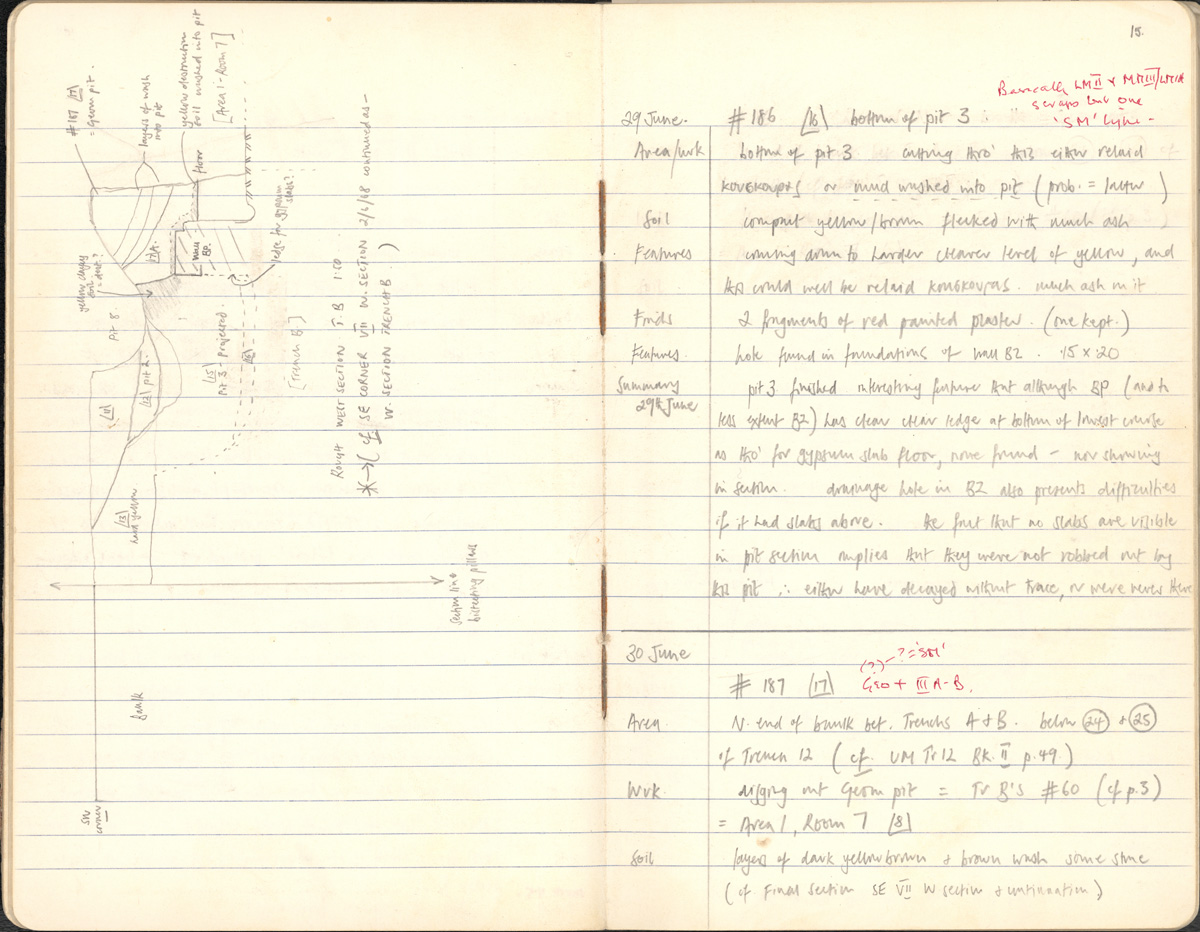 #187 [17]
= Geom pit.
layers of wash
into pit
yellow destruction
soil washed into pit
[Area 1 - Room 7]
floor
17A.
Wall
BP.
ledge for gypsum
slabs?
yellow clayey
soil
= dest.?
Pit 8.
[11]
[12] pit 2.
[15]
Pit 3 projected
[16]
[Trench B.]
[13]
hard yellow
ROUGH WEST SECTION T.B 1:50
* → (cf SE CORNER VII W. SECTION 2/6/8 continued as –
W. SECTION TRENCH B.)
section line
bisecting pillars
baulk
SW
corner
15.
Basically LMII & MMIII/LMIA
scraps but one
'SM' type -
29 June. #186 [16] bottom of pit 3.
Area/wrk bottom of pit 3 cutting thro' this either relaid
kouskouras or mud washed into pit (prob. = latter)
Soil compact yellow/brown flecked with much ash
Features coming down to harder clearer level of yellow, and
this could well be relaid kouskouras. much ash on it
Finds 2 fragments of red painted plaster. (one kept.)
Features. hole found in foundations of wall BZ. .15 x .20
Summary pit 3 finished interesting feature that although BP (and to
29th June less extent BZ) has clear clear ledge at bottom of lowest course
as tho' for gypsum slab floor, none found - nor showing
in section. drainage hole in BZ also presents difficulties
if it had slabs above. the fact that no slabs are visible
in pit section implies that they were not robbed out by
this pit ∴ either have decayed without trace, or were never there
30 June
(?) - ? = 'SM'
#187 [17] Geo + III A-B.
Area. N. end of baulk bet. Trenchs A & B. below (24) & (25)
of Trench 12 (cf. UM Tr 12 BK. II p.49.)
Wrk. digging out Geom pit = Tr B's #60 (cf p.3)
= Area 1, Room 7 [8]
Soil layers of dark yellow brown & brown wash some stone
(cf Final Section SE VII W section & continuation.)